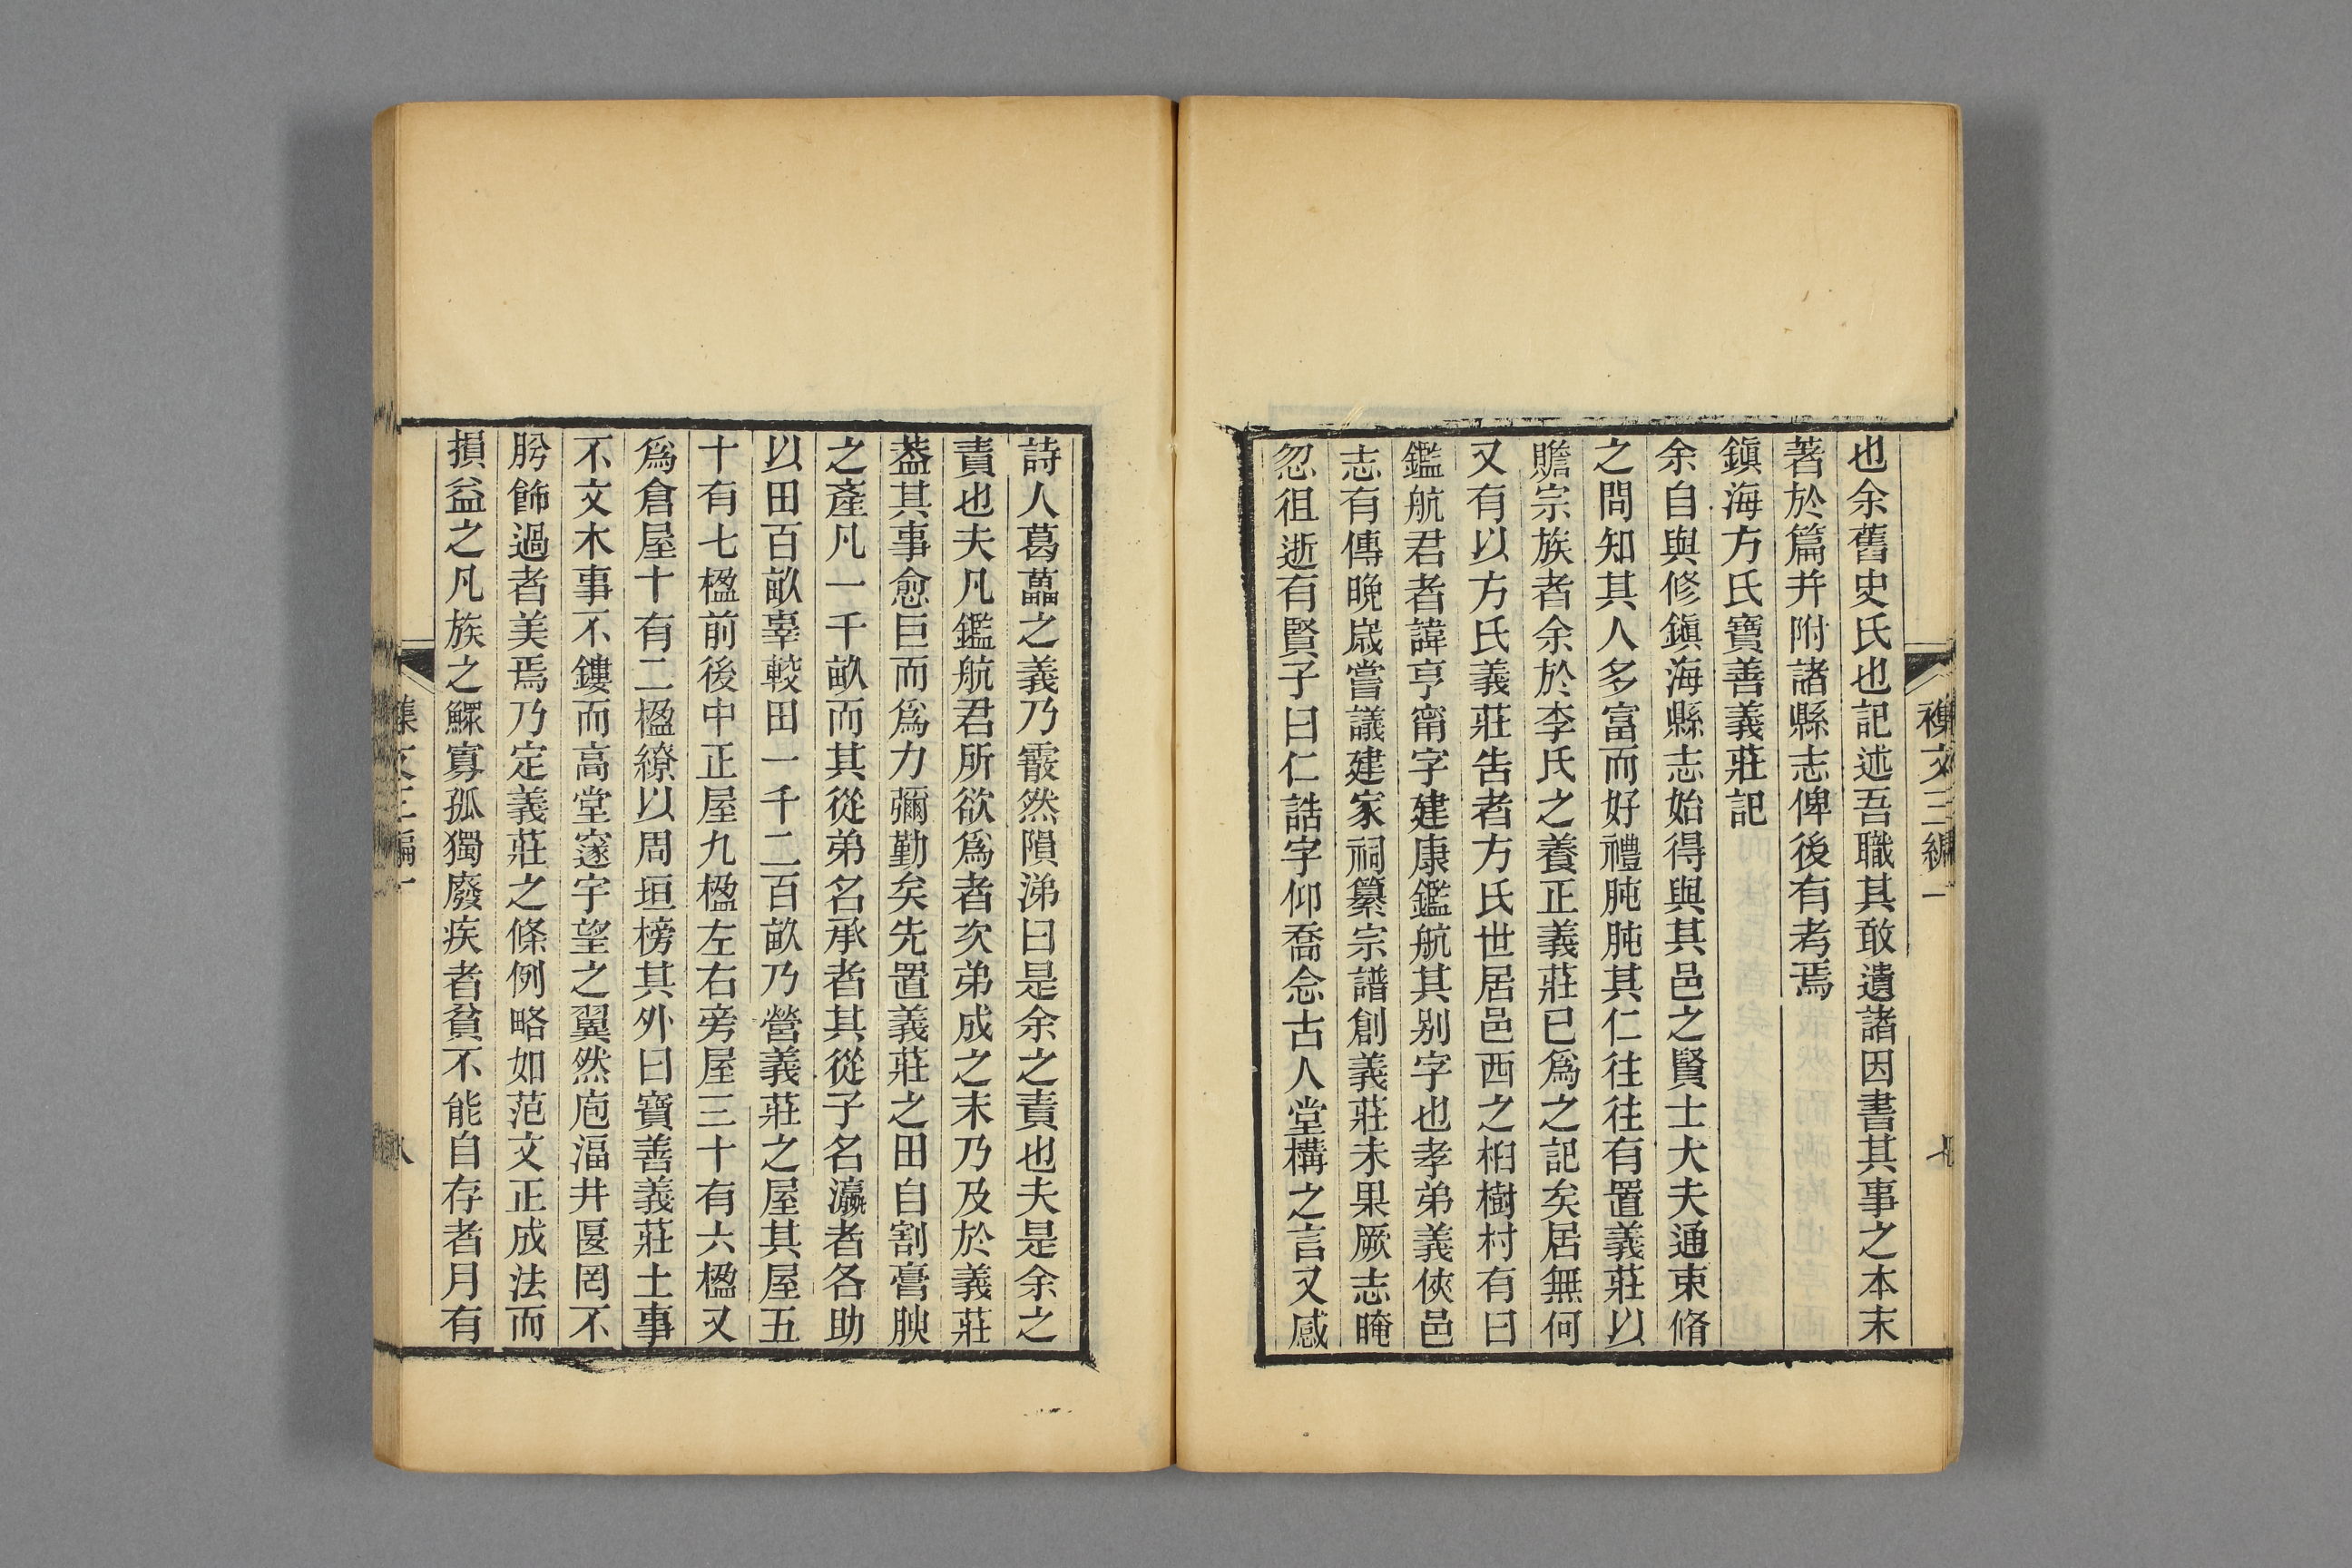 襍文三編一
七
也余舊史氏也記述吾職其敢遺諸因書其事之本末
著於篇并附諸縣志俾後有考焉
鎭海方氏寶善義莊記
余自與修鎭海縣志始得與其邑之賢士大夫通束脩
之問知其人多富而好禮肫肫其仁往往有置義莊以
贍宗族者余於李氏之養正義莊已爲之記矣居無何
又有以方氏義莊告者方氏世居邑西之桕樹村有曰
鑑航君者諱亨甯字建康鑑航其别字也孝弟義俠邑
志有傳晚歲嘗議建家祠纂宗譜創義莊未果厥志晻
忽徂逝有賢子曰仁誥字仰喬念古人堂構之言又感
詩人葛藟之義乃霰然隕涕曰是余之責也夫是余之
責也夫凡鑑航君所欲爲者次弟成之末乃及於義莊
葢其事愈巨而爲力彌勤矣先置義莊之田自割膏腴
之產凡一千畝而其從弟名承者其從子名瀛者各助
以田百畝辜較田一千二百畝乃營義莊之屋其屋五
十有七楹前後中正屋九楹左右旁屋三十有六楹又
爲倉屋十有二楹繚以周垣榜其外曰寶善義莊土事
不文木事不鏤而高堂邃宇望之翼然庖湢井匽罔不
肹飾過者美焉乃定義莊之條例略如范文正成法而
損益之凡族之鰥寡孤獨廢疾者貧不能自存者月有
集文三編一
八